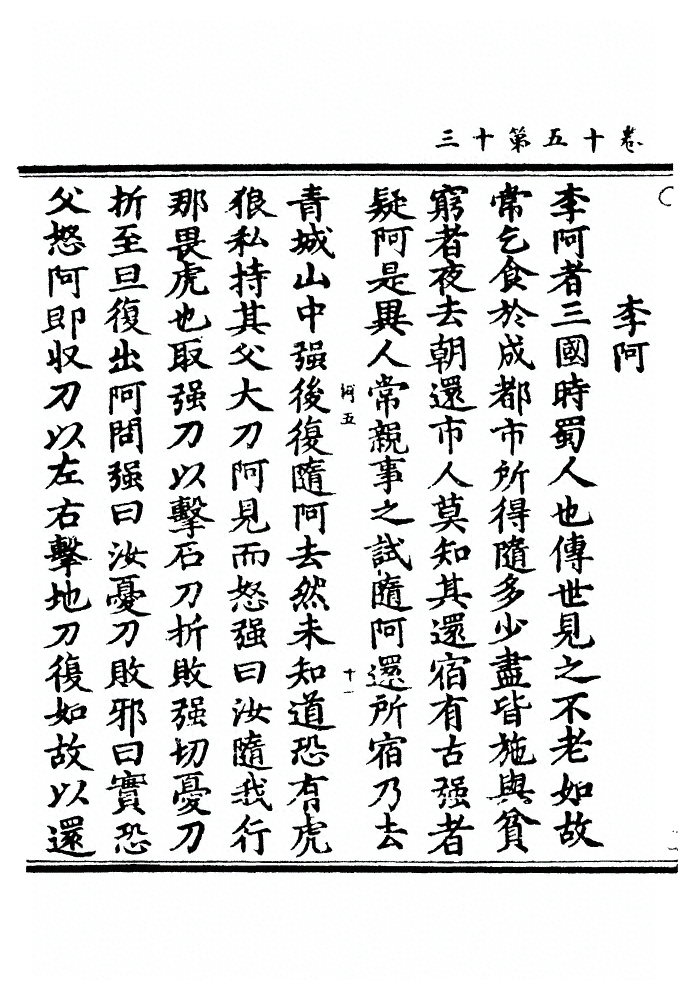 卷十五第十三
李阿
李阿者三國時蜀人也傳世見之不老如故
常乞食於成都市所得隨多少盡皆施與貧
窮者夜去朝還市人莫知其還宿有古强者
疑阿是異人常親事之試隨阿還所宿乃去
五
十一
青城山中强後復隨阿去然未知道恐有虎
狼私持其父大刀阿見而怒强曰汝隨我行
那畏虎也取强刀以擊石刀折敗强切憂刀
折至旦復出阿問强曰汝憂刀敗邪曰實恐
父怒阿即収刀以左右擊地刀復如故以還